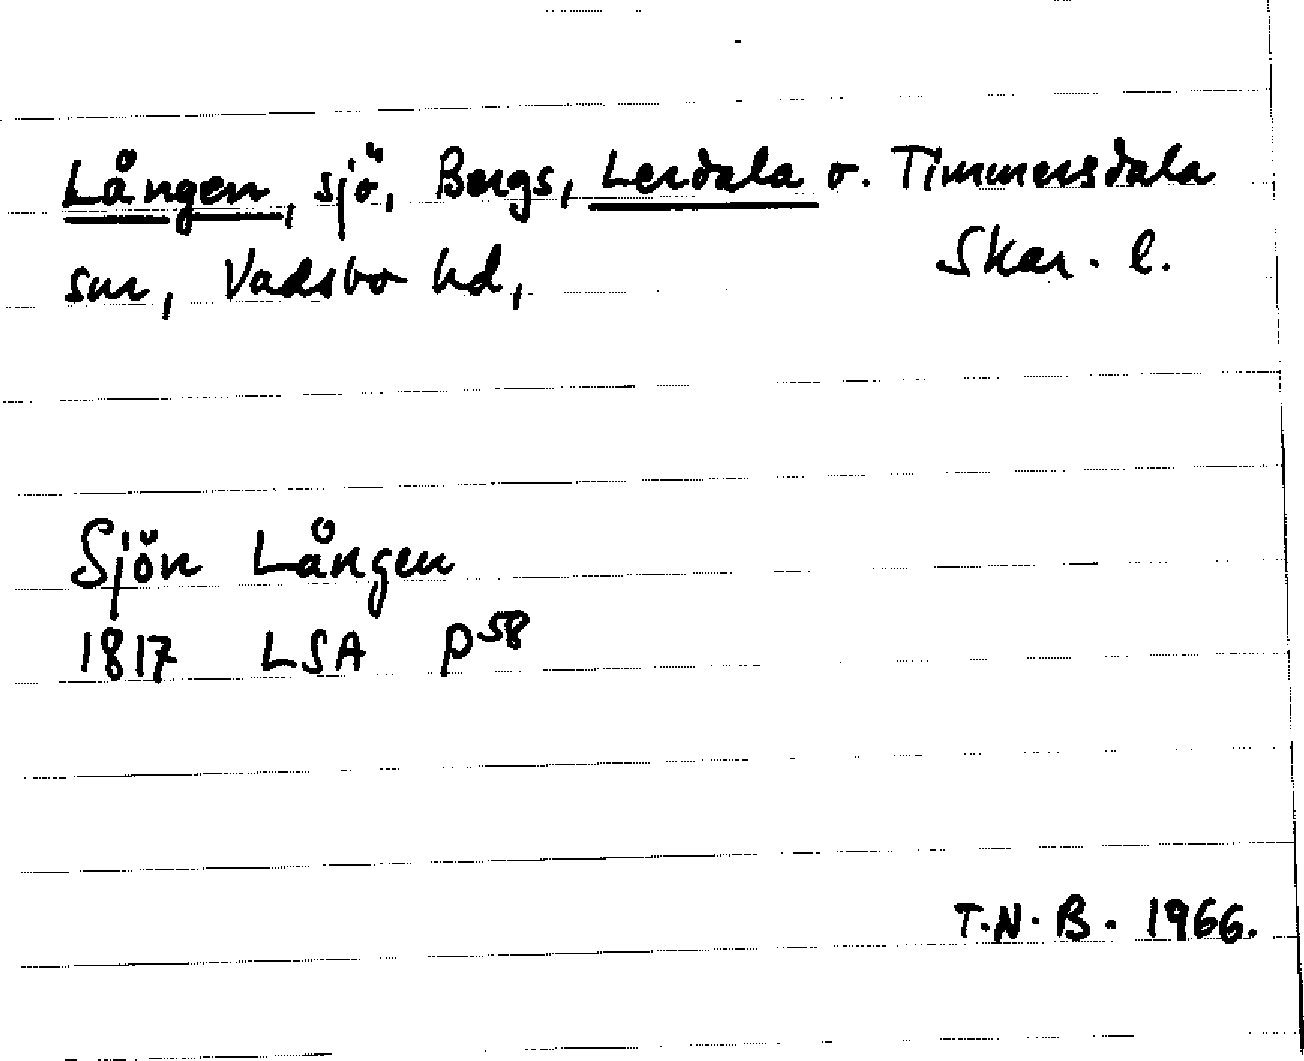 Lången, sjö, Bergs, Lerdala o. Timmersdala
snr, Vadsbo hd, Skar. l.
Sjön Lången
1817 LSA P58
T.N.B. 1966.